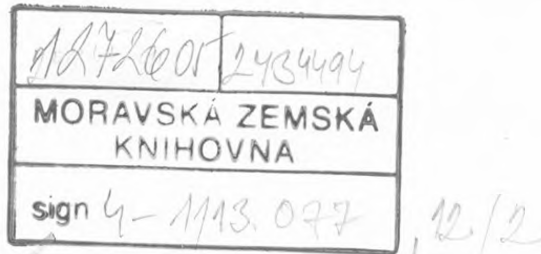 2434494
MORAVSKÁ ZEMSKÁ
KNIHOVNA
sign 4-1113.077, 12/2